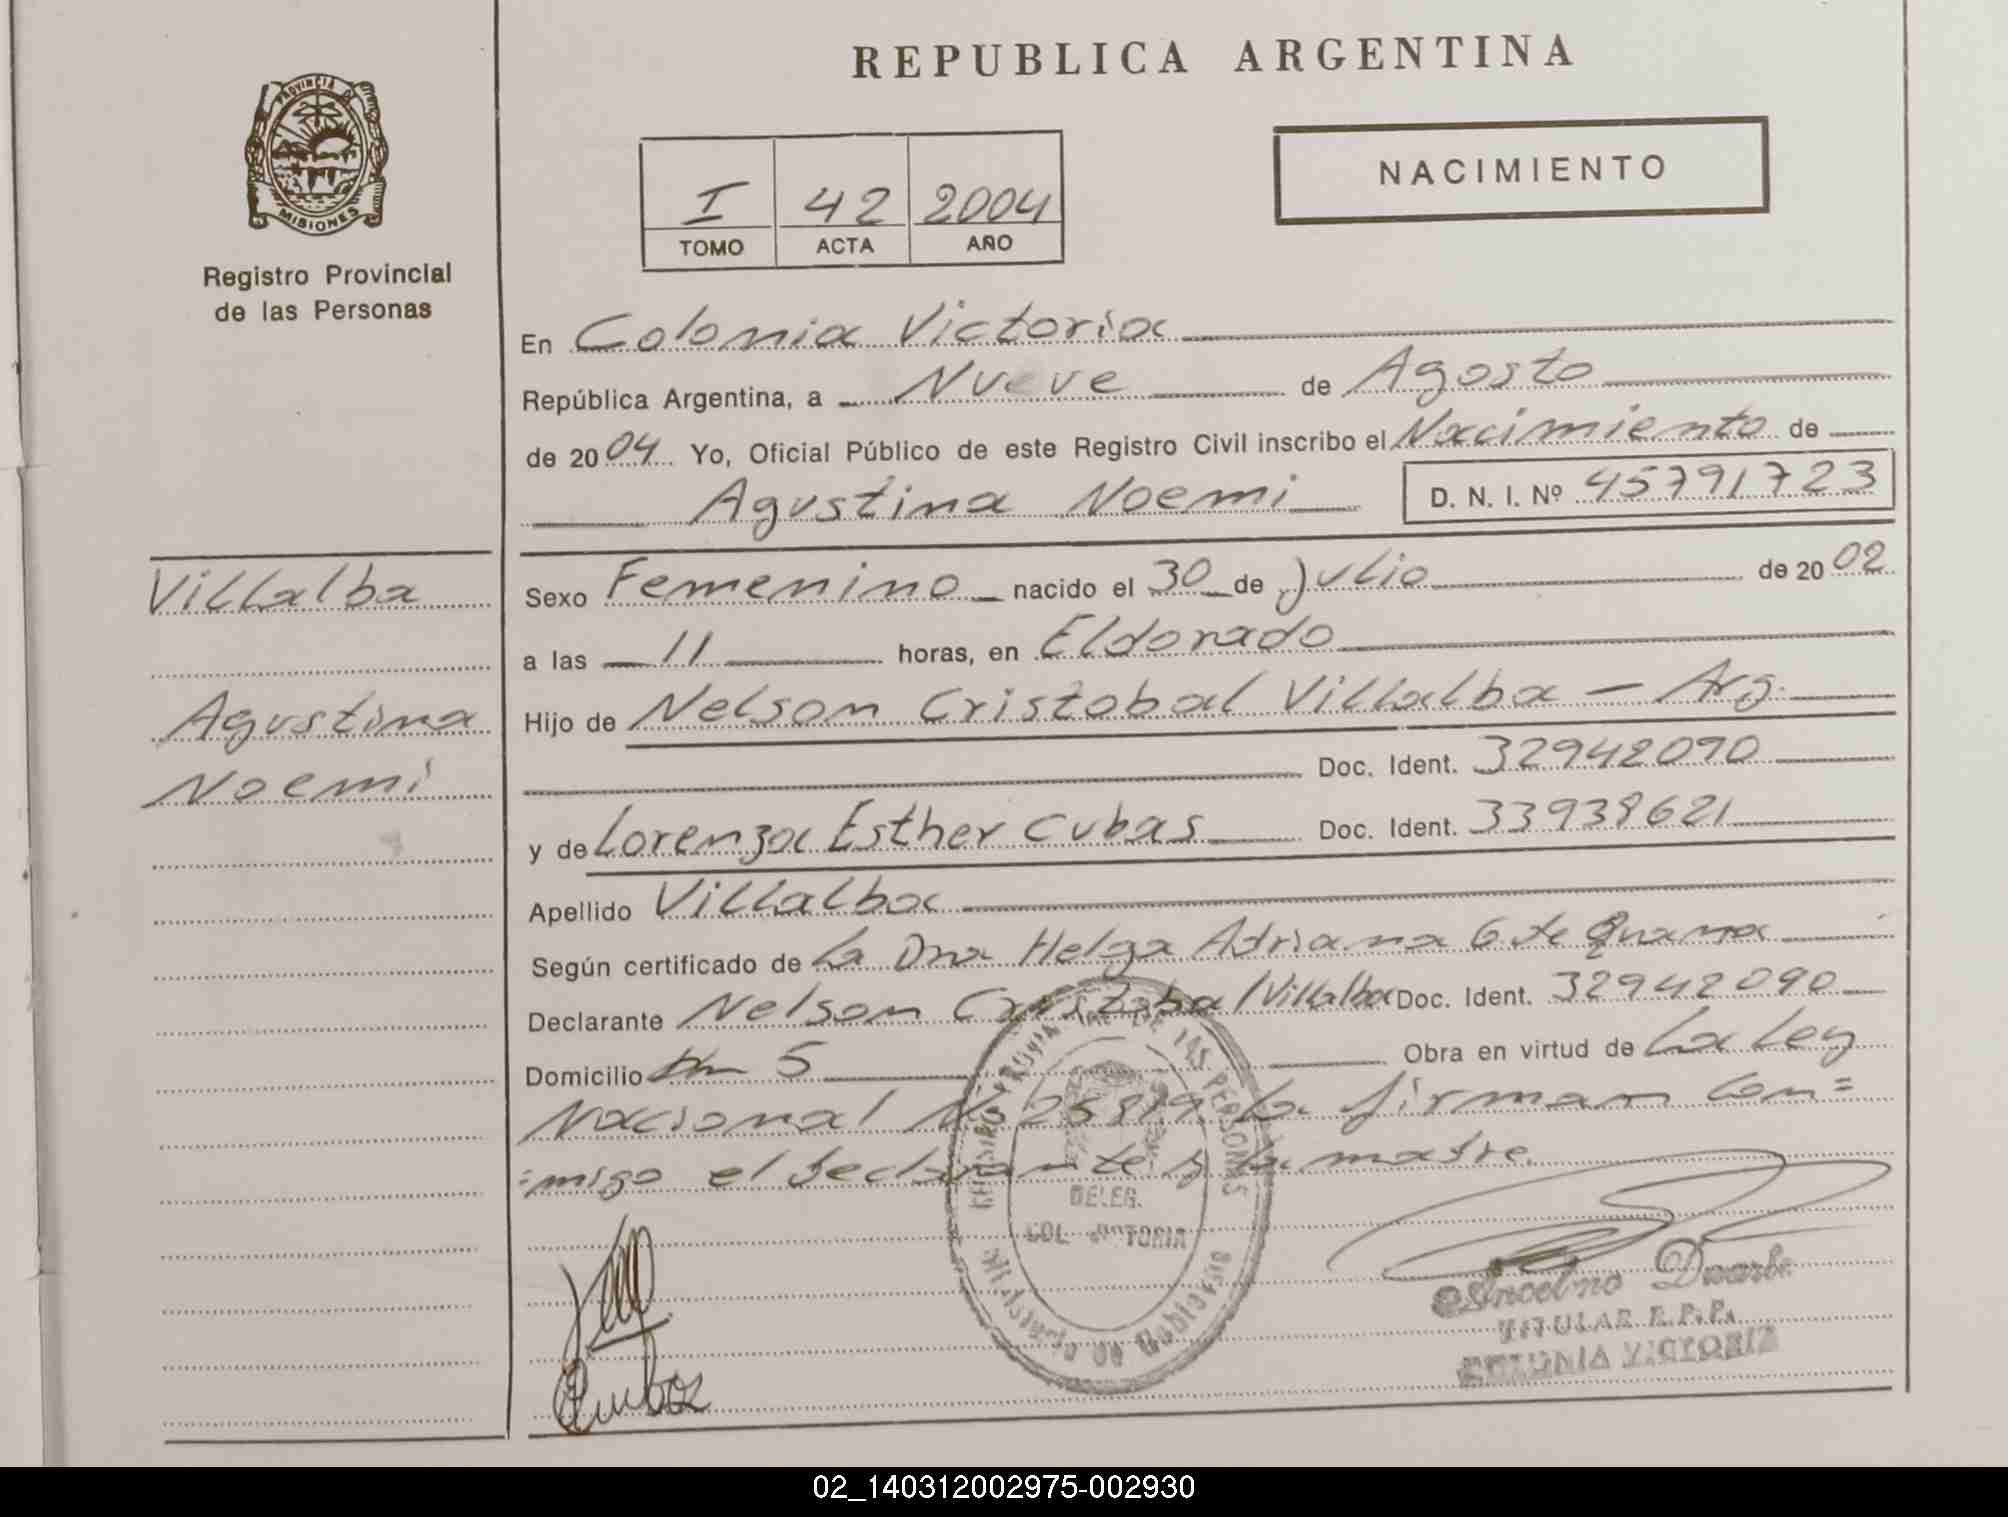 REPUBLICA ARGENTINA
PROVINCIA DE
MISIONES
Registro Provincial
de las Personas
NACIMIENTO
I 42 2004
TOMO ACTA AÑO
En Colonia Victoria
República Argentina, a Nueve de Agosto
de 2004 Yo, Oficial Público de este Registro Civil inscribo el Nacimiento de
Agustina Noemi D. N. I. Nº 45791723
Villalba
Agustina
Noemi
Sexo Femenino nacido el 30 de Julio de 2002
a las 11 horas, en Eldorado
Hijo de Nelson Cristobal Villalba - Arg.
Doc. Ident. 32942090
y de Lorenza Esther Cubas Doc. Ident. 33938621
Apellido Villalba
Según certificado de La Dra Helga Adriana G de
Declarante Nelson Cristobal Villalba Doc. Ident. 32942090
Domicilio Km 5 Obra en virtud de La Ley
Nacional No 25819 La firman con=
=migo el declarante y la madre.
REGISTRO PROVINCIAL DE LAS PERSONAS
DELEG.
COL. VICTORIA
Ministerio de Gobierno
Cubas
Ancelmo Duarte
TITULAR R.P.P.
COLONIA VICTORIA
02_140312002975-002930